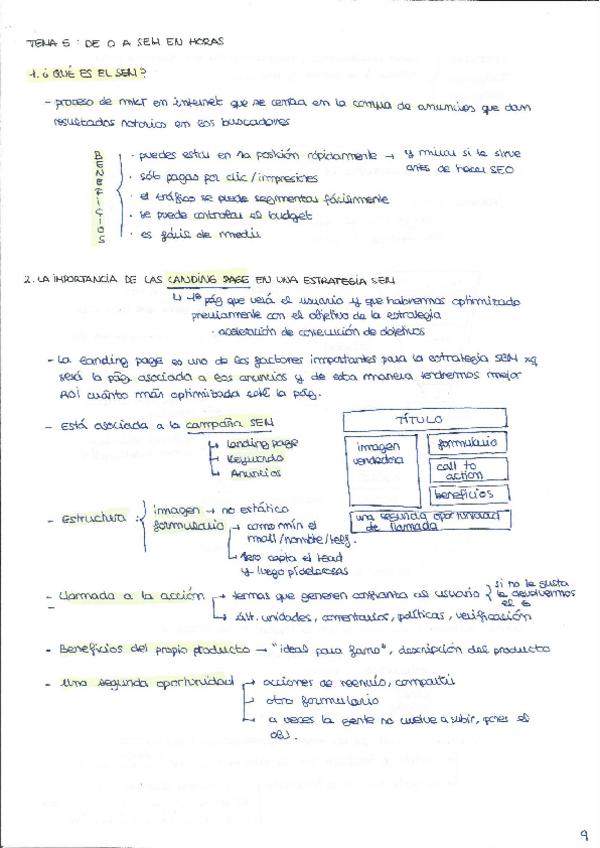 TEMA 5: DE 0 A SEM EN HORAS
1. ¿QUÉ ES EL SEM?
- proceso de mkt en internet que se centra en la compra de anuncios que dan
resultados notorios en los buscadores
BENEFICIOS
· puedes estar en 1ª posición rápidamente → y mirar si te sirve
antes de hacer SEO
· sólo pagas por clic/impresiones
· el tráfico se puede segmentar fácilmente
· se puede controlar el budget
· es fácil de medir
2. LA IMPORTANCIA DE LAS LANDING PAGE EN UNA ESTRATEGIA SEM
↳ 1ª pág que verá el usuario y que habremos optimizado
previamente con el objetivo de la estrategia
· aceleración de conversión de objetivos
- La landing page es uno de los factores importantes para la estrategia SEM xq
será la pág asociada a los anuncios y de esta manera tendremos mejor
ROI cuánto más optimizada esté la pág.
- Está asociada a la campaña SEM
↳ Landing page
↳ Keywords
↳ Anuncios
TÍTULO
imagen
vendedora
formulario
call to
action
beneficios
una segunda oportunidad
de llamada
- Estructura:
imagen → no estático
formulario → como mín el
mail/nombre/telf.
↳ 1ero capta el lead
y luego pídele cosas
- Llamada a la acción → temas que generen confianza al usuario { si no le gusta
le devolvemos
el €
↳ últ. unidades, comentarios, políticas, verificación
- Beneficios del propio producto → "ideal para farro", descripción del producto
- Una segunda oportunidad → acciones de reenvío, compartir
→ otro formulario
↳ a veces la gente no vuelve a subir, pones el
obj.
9